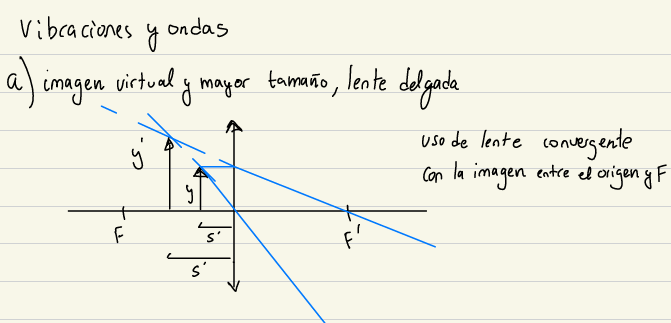 Vibraciones y ondas
a) imagen virtual y mayor tamaño, lente delgada
uso de lente convergente
con la imagen entre el origen y F
y'
y
F
s'
F'
s'